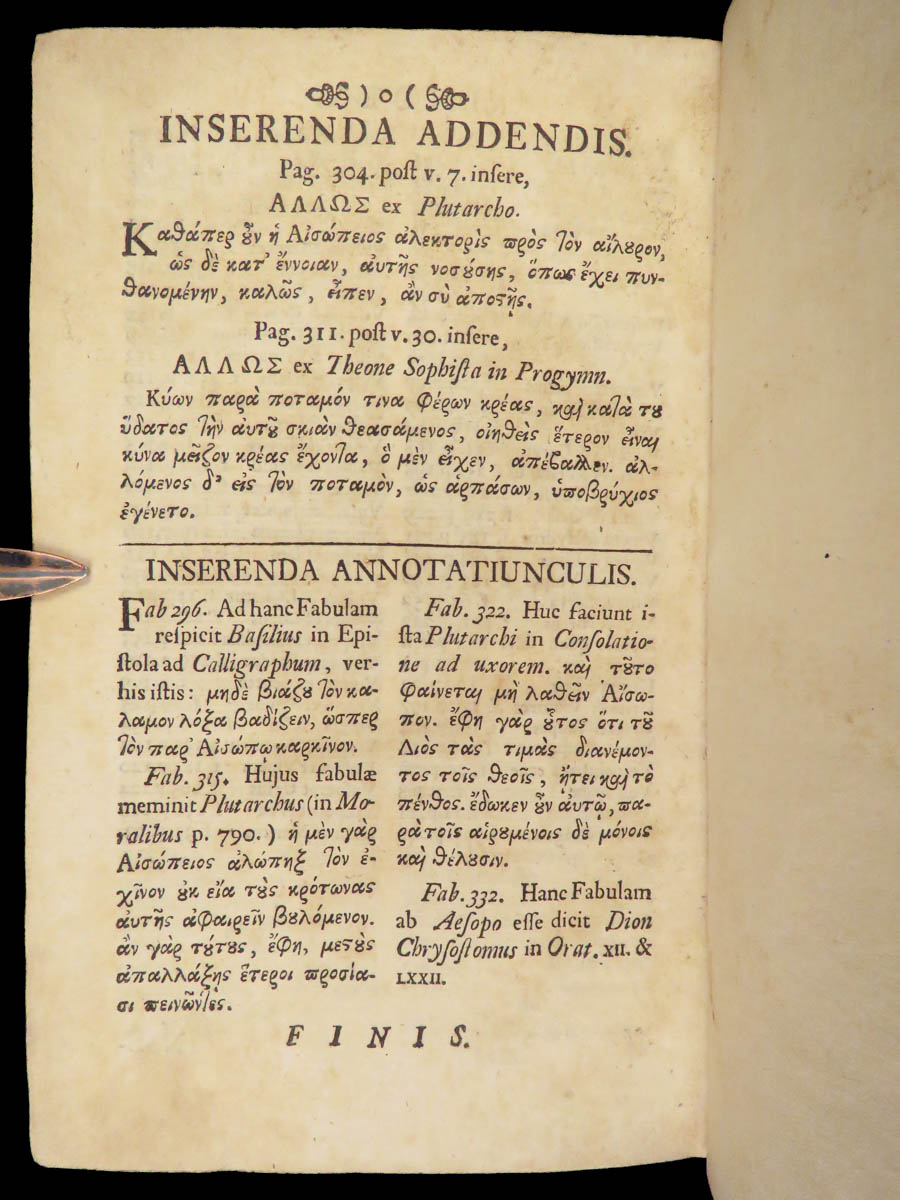 ) o (
INSERENDA ADDENDIS.
Pag. 304. poſt v. 7. inſere,
ΑΛΛΩΣ ex Plutarcho.
Καθάπερ ȣ̓͂ν ἡ Αἰσώπειος ἀλεκτορὶς πρὸς τὸν αἴλȣρον,
ὡς δὲ κατ' ἔννοιαν, αὐτῆς νοσȣ́σης, ὅπως ἔχει πυν-
θανομένην, καλῶς, εἶπεν, ἂν σὺ ἀποϛῇς.
Pag. 311. poſt v. 30. inſere,
ΑΛΛΩΣ ex Theone Sophiſta in Progymn.
Κύων παρὰ ποταμόν τινα φέρων κρέας, καὶ κατὰ τȣ
ὕδατος τὴν αὐτȣ͂ σκιὰν θεασάμενος, οἰηθεὶς ἕτερον εἶναι
κύνα μεῖζον κρέας ἔχοντα, ὃ μὲν εἶχεν, ἀπέβαλλεν. ἁλ-
λόμενος δ' εἰς τὸν ποταμὸν, ὡς ἁρπάσων, ὑποβρύχιος
ἐγένετο.
INSERENDA ANNOTATIUNCULIS.
Fab 296. Ad hanc Fabulam
reſpicit Baſilius in Epi-
ſtola ad Calligraphum, ver-
his iſtis: μηδὲ βιάζȣ τὸν κα-
λαμον λόξα βαδίζειν, ὥσπερ
τὸν παρ' Αἰσώπῳ καρκῖνον.
Fab. 315. Hujus fabulæ
meminit Plutarchus (in Mo-
ralibus p. 790.) ἡ μὲν γὰρ
Αἰσώπειος ἀλώπηξ τὸν ἐ-
χῖνον ȣ̓κ εἴα τȣ̀ς κρότωνας
αὐτῆς ἀφαιρεῖν βȣλόμενον.
ἂν γὰρ τȣ́τȣς, ἔφη, μεϛȣ̀ς
ἀπαλλάξῃς ἕτεροι προσία-
σι πεινῶντες.
Fab. 322. Huc faciunt i-
ſta Plutarchi in Conſolatio-
ne ad uxorem. καὶ τȣ͂το
φαίνεται μὴ λαθεῖν Αἴσω-
πον. ἔφη γὰρ ȣ̓͂τος ὅτι τȣ͂
Διὸς τὰς τιμὰς διανέμον-
τος τοῖς θεοῖς, ᾔτει καὶ τὸ
πένθος. ἔδωκεν ȣ̓͂ν αὐτῷ, πα-
ρὰ τοῖς αἱρȣμένοις δὲ μόνοις
καὶ θέλȣσιν.
Fab. 332. Hanc Fabulam
ab Aeſopo eſſe dicit Dion
Chryſoſtomus in Orat. XII. &
LXXII.
FINIS.